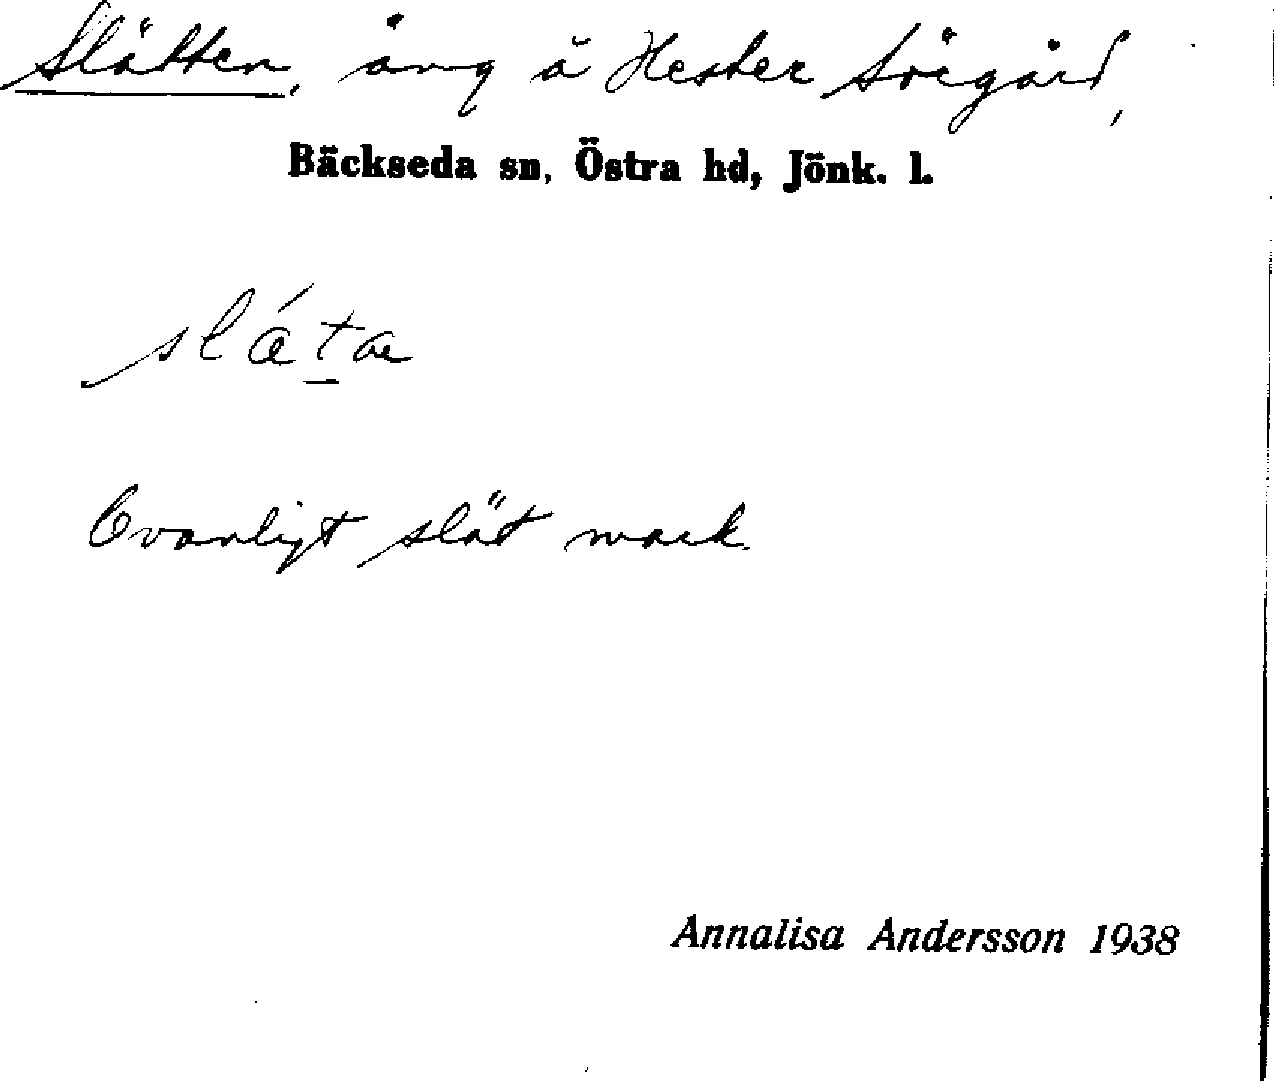 Slätten, äng å Hester Sörgård,
Bäckseda sn, Östra hd, Jönk. l.
Ovanligt slät mark.
Annalisa Andersson 1938